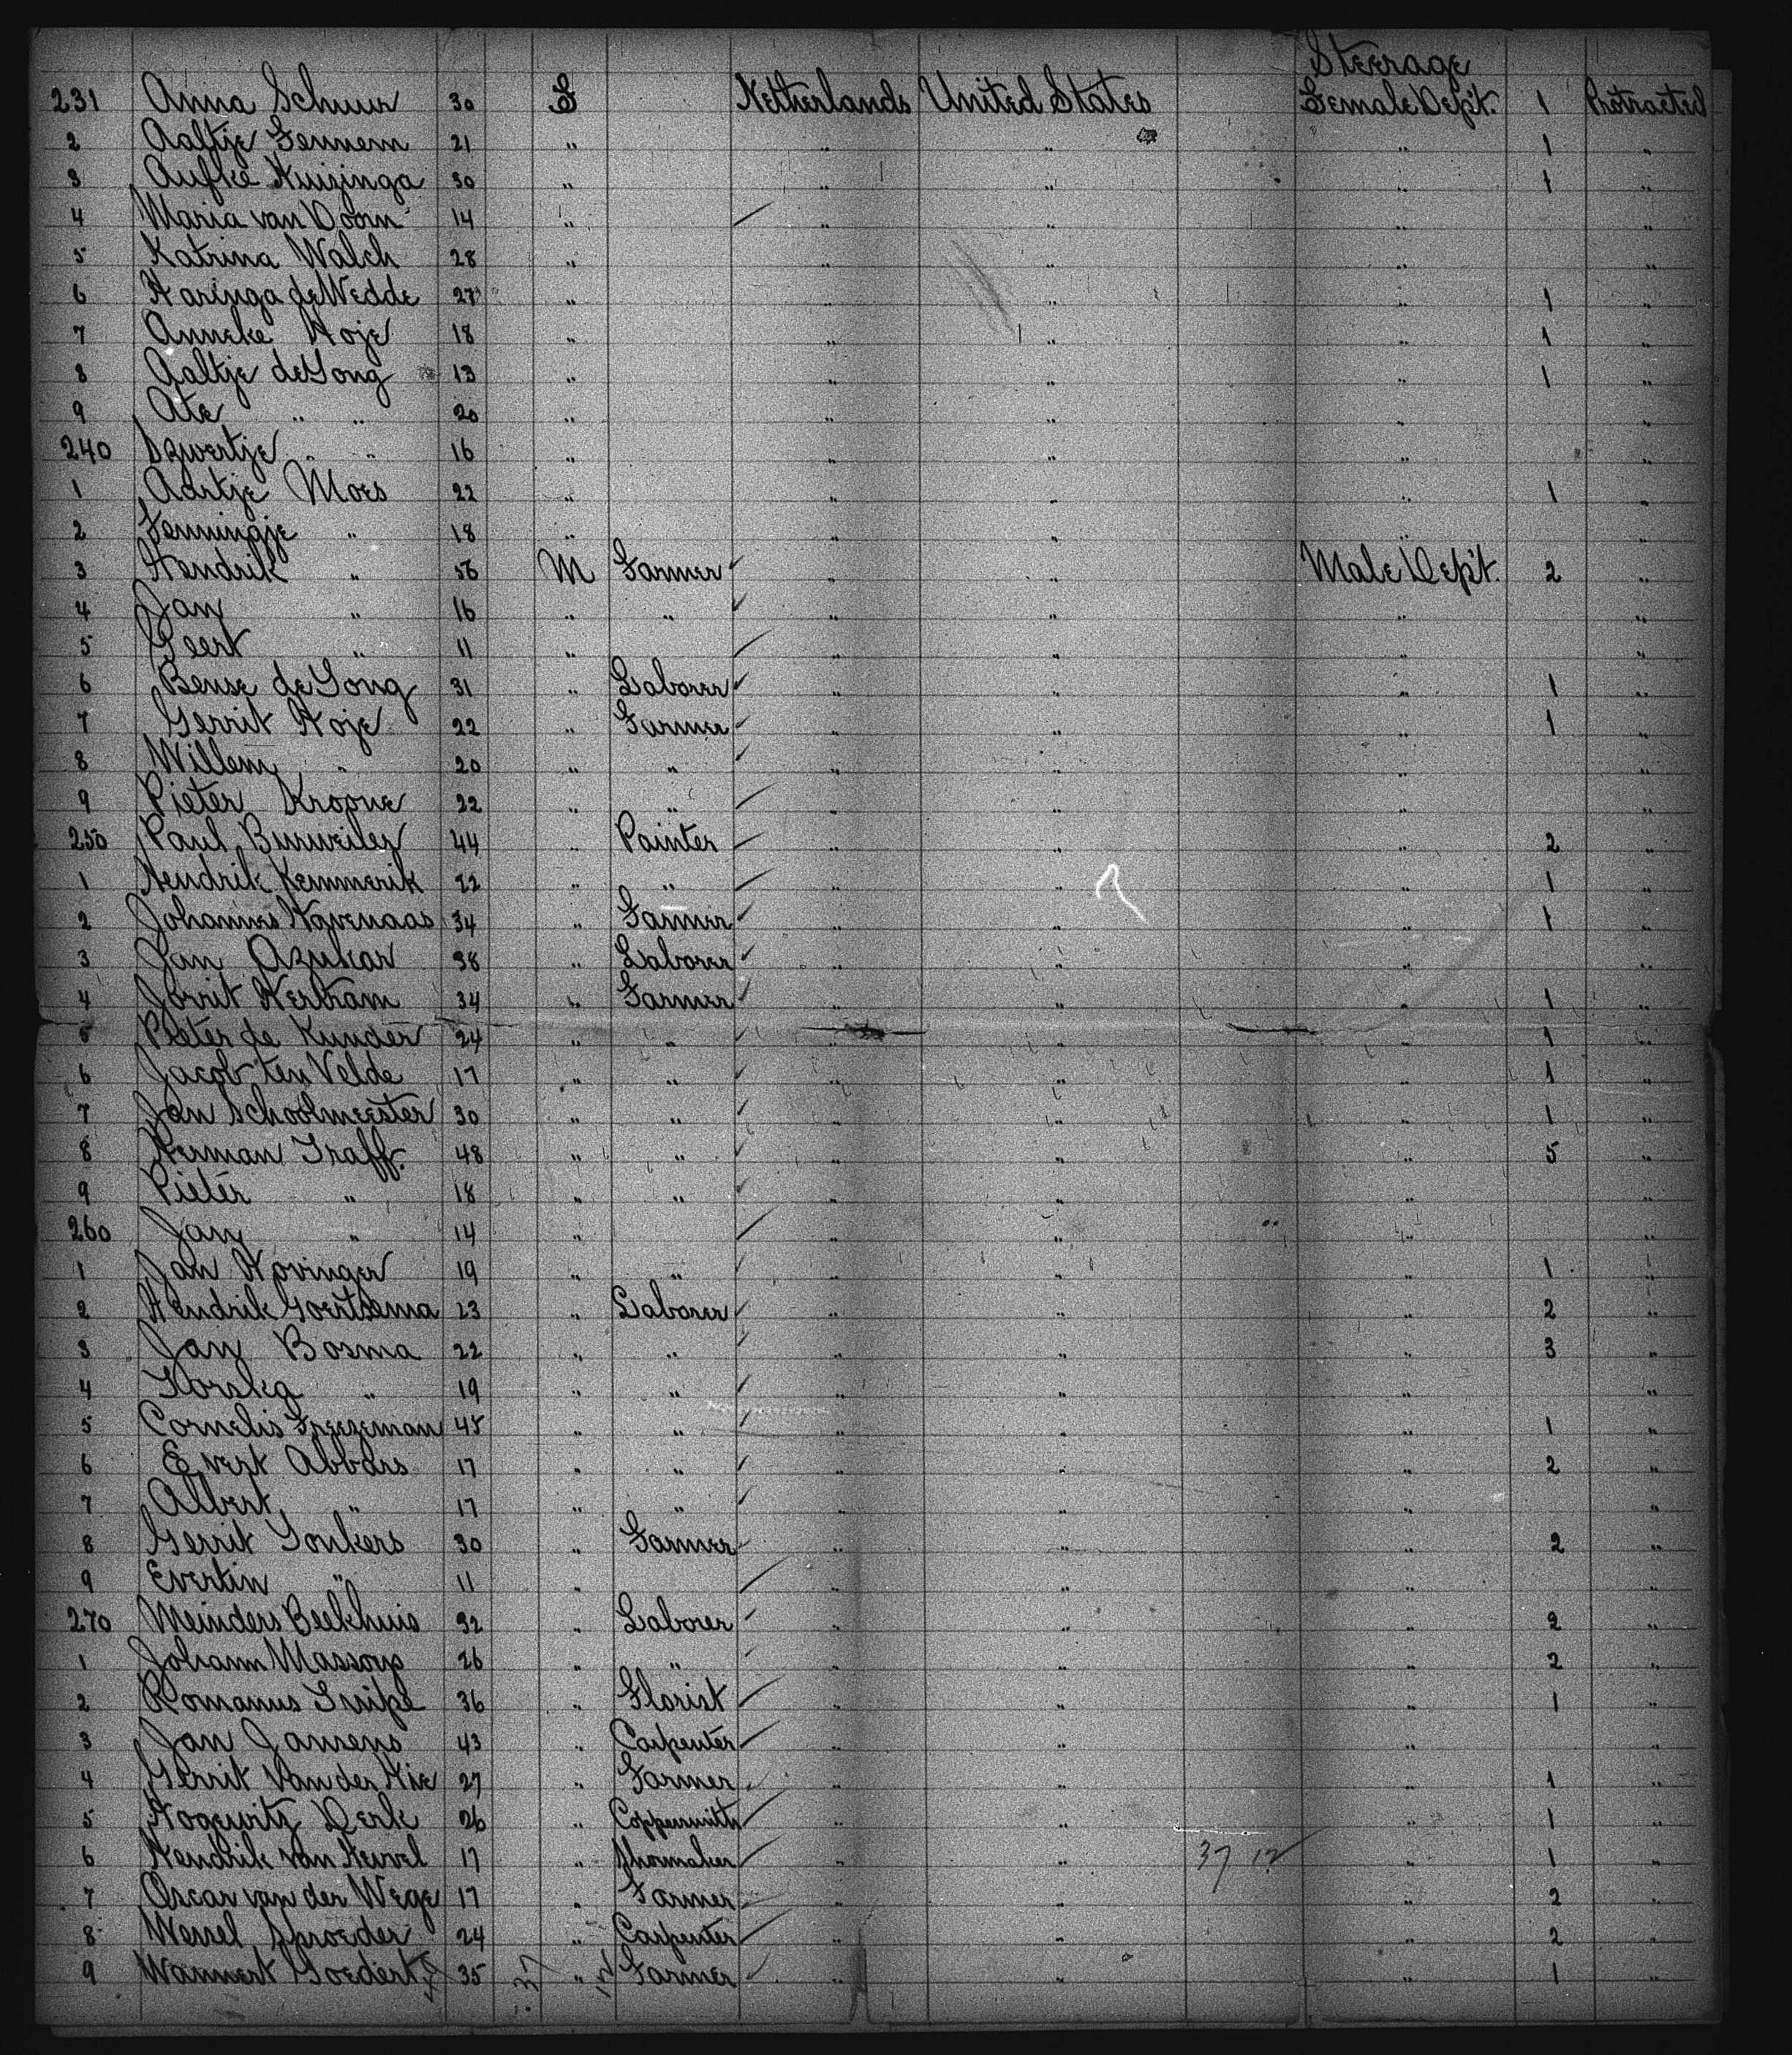 Steerage
231 Anna Schuur 30 F Netherlands United States Female Dep't. 1 Protracted
2 Aaltje Fennem 21 " " " " 1 "
3 Aufke Huizinga 30 " " " " 1 "
4 Maria van Doorn 14 " " " " "
5 Katrina Walch 28 " " " " "
6 Haringa de Wedde 27 " " " " 1 "
7 Anneke Hoje 18 " " " " 1 "
8 Aaltje de Jong 13 " " " " 1 "
9 Ate " " 20 " " " " "
240 " " 16 " " " " "
1 Aartje Moes 22 " " " " 1 "
2 Jenningje " 18 " " " " "
3 Hendrik " 56 M Farmer " " Male Dep't. 2 "
4 Jan " 16 " " " " " "
5 Geert " 11 " " " " "
6 Bense de Jong 31 " Laborer " " " 1 "
7 Gerrit Hoje 22 " Farmer " " " 1 "
8 Willem " 20 " " " " " "
9 Pieter Kroone 22 " " " " " "
250 Paul Burweiler 44 " Painter " " " 2 "
1 Hendrik Kemmerik 22 " " " " " 1 "
2 Johannes 34 " Farmer " " " 1 "
3 Jan Azukar 38 " Laborer " " " "
4 Jorrit Hertram 34 " Farmer " " " 1 "
5 Pieter de Kunder 24 " " " " " 1 "
6 Jacob ten Velde 17 " " " " " 1 "
7 Jan Schoolmeester 30 " " " " " 1 "
8 Herman Graff. 48 " " " " " 5 "
9 Pieter " 18 " " " " " "
260 Jan " 14 " " " " "
1 Jan Hovinger 19 " " " " " 1 "
2 Hendrik Goertsema 23 " Laborer " " " 2 "
3 Jan Bosma 22 " " " " " 3 "
4 " 19 " " " " " "
5 Cornelis Freezeman 45 " " " " " 1 "
6 Evert Abbars 17 " " " " " 2 "
7 Albert " 17 " " " " " "
8 Gerrit Jonkers 30 " Farmer " " " 2 "
9 Evertin " 11 " " " " "
270 Meinders Beekhuis 32 " Laborer " " " 2 "
1 Johann Massoup 26 " " " " " 2 "
2 Romanus 36 " Florist " " " 1 "
3 Jan Jansens 43 " Carpenter " " " "
4 Gerrit van der Hie 27 " Farmer " " " 1 "
5 Hogewitz Derk 26 " Coppersmith " " " 1 "
6 Hendrik van Hewel 17 " Shoemaker " " 37 12 " 1 "
7 Oscar van der Wege 17 " Farmer " " " 2 "
8 Wessel Shroeder 24 " Carpenter " " " 2 "
9 Wannert Goedert 35 " Farmer " " " 1 "